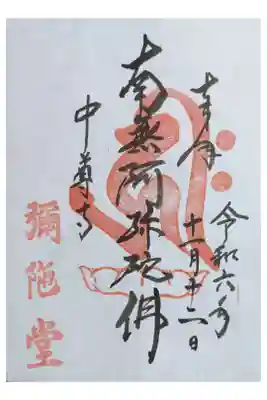 奉拝
令和六年
十一月十二日
南無阿弥陀佛
中尊寺
彌陀堂